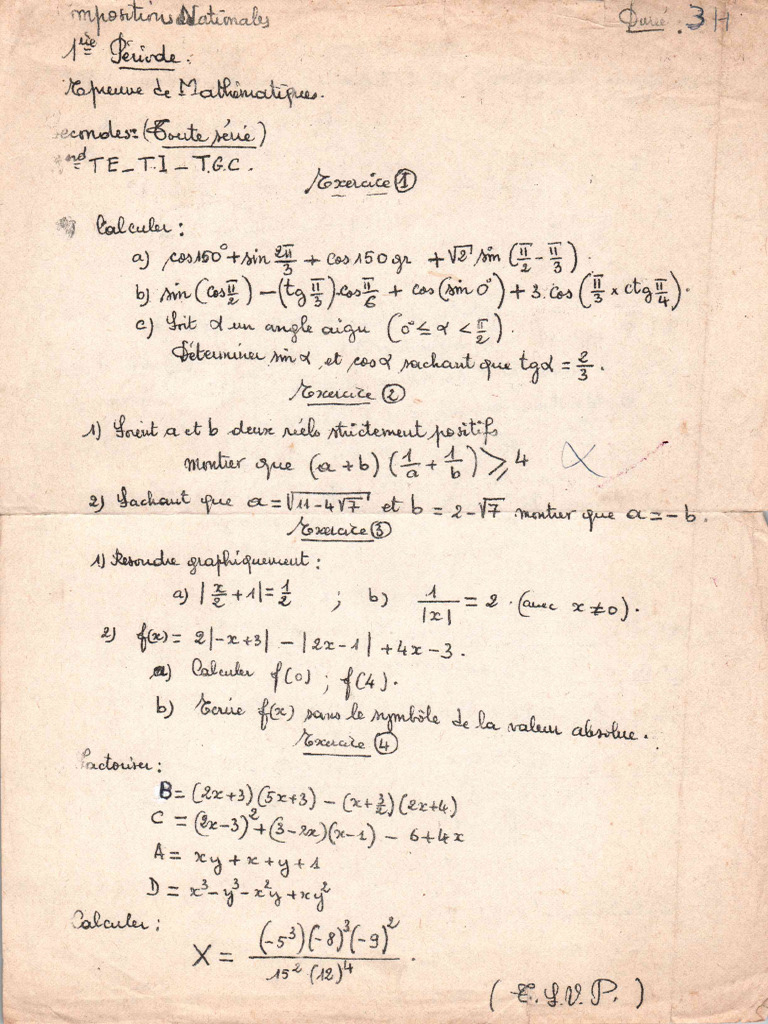 mposition Nationales
Durée : 3H
1ère Période :
Epreuve de Mathématiques.
econdes : (Toute série)
nd TE _ T.I _ T.G.C.
Exercice ①
Calculer :
a) cos150° + sin 2π/3 + cos 150 gr + √2 sin (π/2 - π/3).
b) sin (cos π/2) - (tg π/3) cos π/6 + cos (sin 0°) + 3.cos (π/3 x ctg π/4).
c) Soit α un angle aigu (0° ≤ α < π/2).
Déterminer sin α et cos α sachant que tgα = 2/3.
Exercice ②
1) Soient a et b deux réels strictement positifs
montrer que (a+b) (1/a + 1/b) ⩾ 4
2) Sachant que a = √(11-4√7) et b = 2-√7 montrer que a = -b.
Exercice ③
1) Résoudre graphiquement :
a) |x/2 + 1| = 1/2 ; b) 1/|x| = 2 . (avec x ≠ 0).
2) f(x) = 2|-x+3| - |2x-1| + 4x - 3.
a) Calculer f(0) ; f(4).
b) Ecrire f(x) sans le symbôle de la valeur absolue.
Exercice ④
Factoriser :
B = (2x+3)(5x+3) - (x+3/2)(2x+4)
C = (2x-3)² + (3-2x)(x-1) - 6+4x
A = xy + x + y + 1
D = x³ - y³ - x²y + xy²
Calculer :
X = (-5³)(-8)³(-9)² / 15² . (12)⁴ .
(T.S.V.P.)